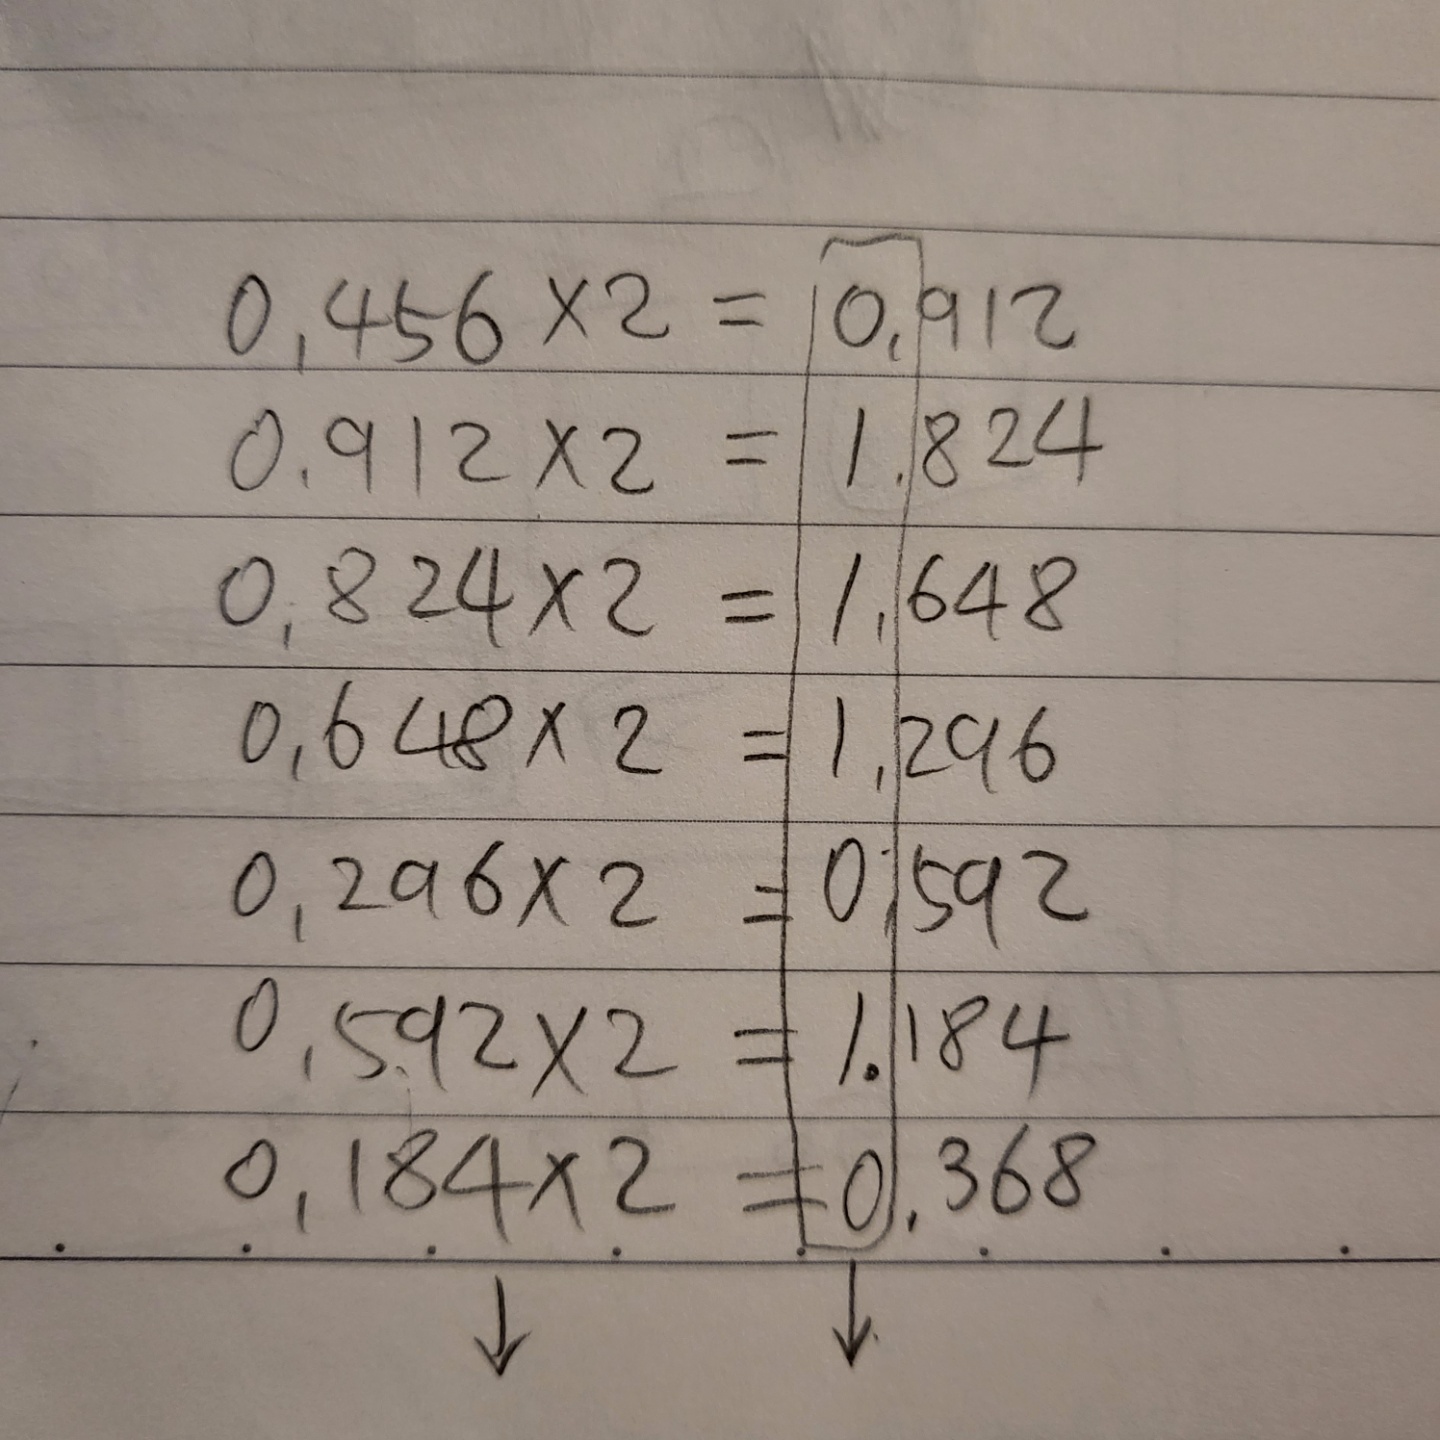 0,456 × 2 = 0,912
0.912 × 2 = 1.824
0,824 × 2 = 1,648
0,648 × 2 = 1,296
0,296 × 2 = 0,592
0,592 × 2 = 1.184
0,184 × 2 = 0.368
↓ ↓